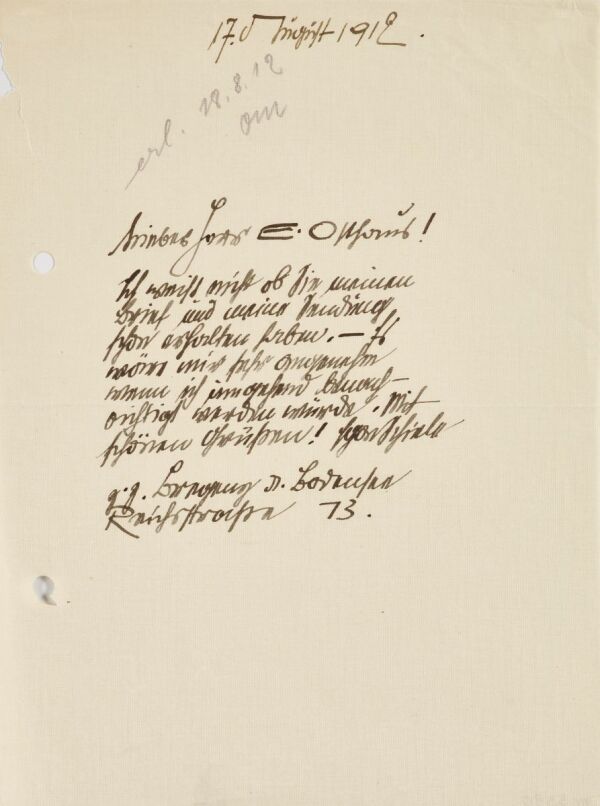 17. August 1912.
erl. 18.8.12
Om
Lieber Herr E. Osthaus!
Ich weiß nicht ob Sie meinen
Brief und meine Sendung
schon erhalten haben. – Es
wäre mir sehr angenehm
wenn ich umgehend benach-
richtigt werden würde. Mit
schönen Grüßen! Egon Schiele
z.Z. Bregenz a. Bodensee
Reichsstrasse 13.